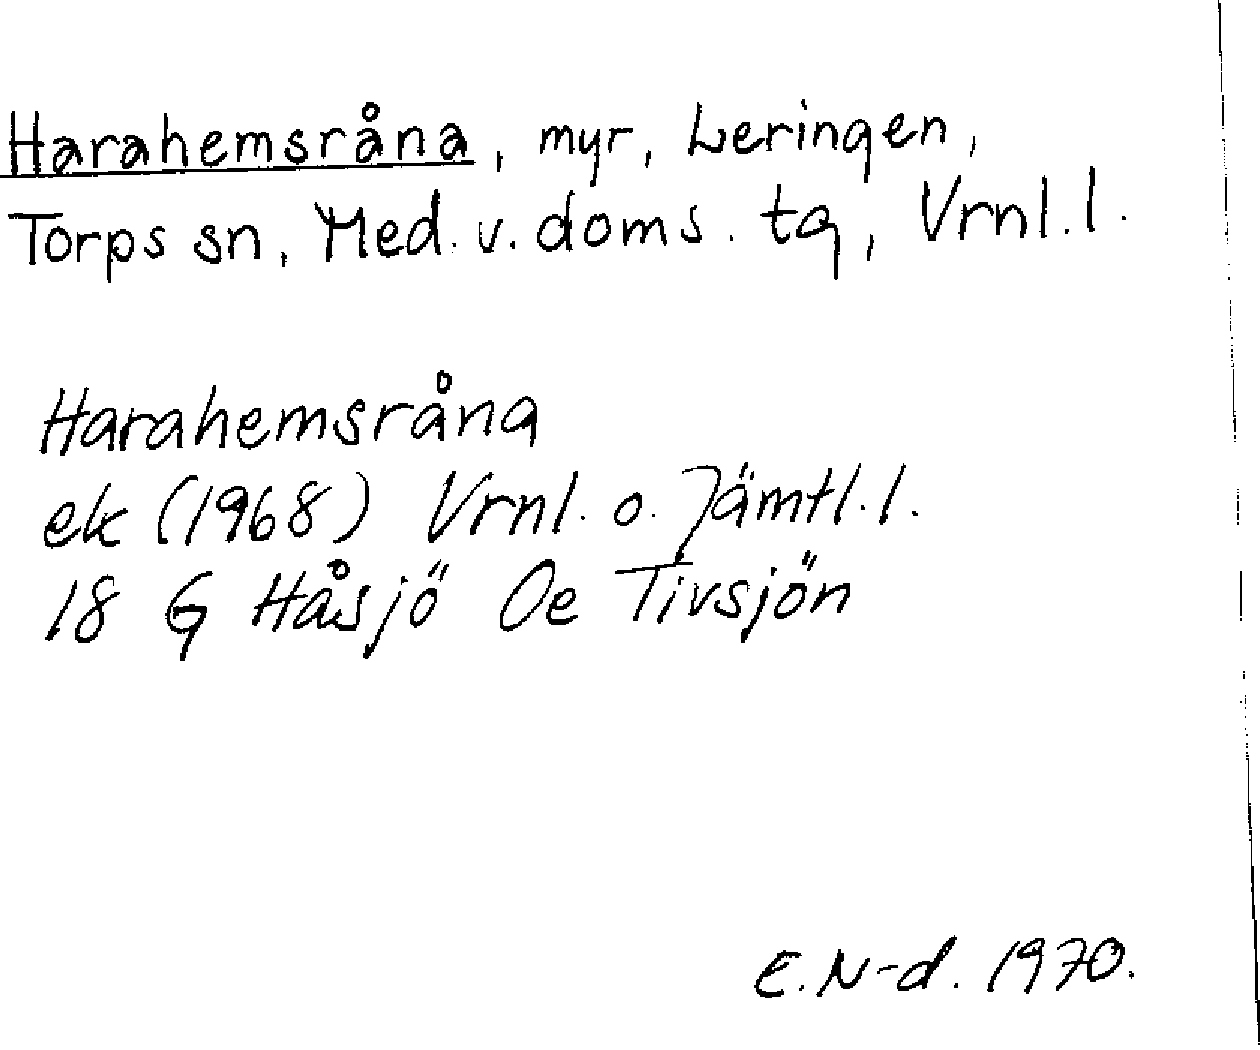 Harahemsråna, myr, Leringen,
Torps sn, Med. v. doms. tg, Vrnl. l.
Harahemsråna
ek (1968) Vrnl. o. Jämtl. l.
18 G Håsjö Oe Tivsjön
E. N-d. 1970.